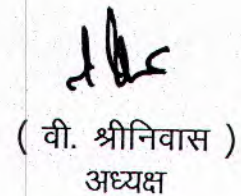 ( वी. श्रीनिवास )
अध्यक्ष